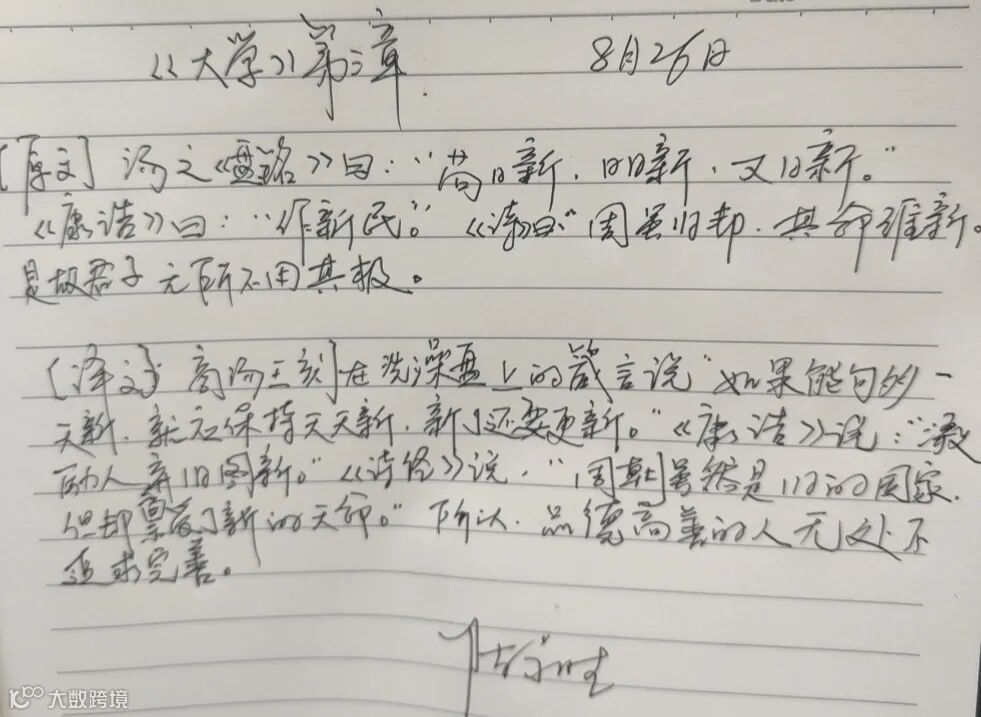 Date
《大学》第三章 8月26日
[原文] 汤之《盘铭》曰："苟日新，日日新，又日新。"
《康诰》曰："作新民。"《诗》曰："周虽旧邦，其命维新。
是故君子无所不用其极。
[译文] 商汤王刻在洗澡盘上的箴言说"如果能够的一
天新，就应保持天天新，新了还要更新。"《康诰》说："激
励人弃旧图新。"《诗经》说，"周朝虽然是旧的国家，
但却禀受了新的天命。"所以，品德高善的人无处不
追求完善。
大数跨境